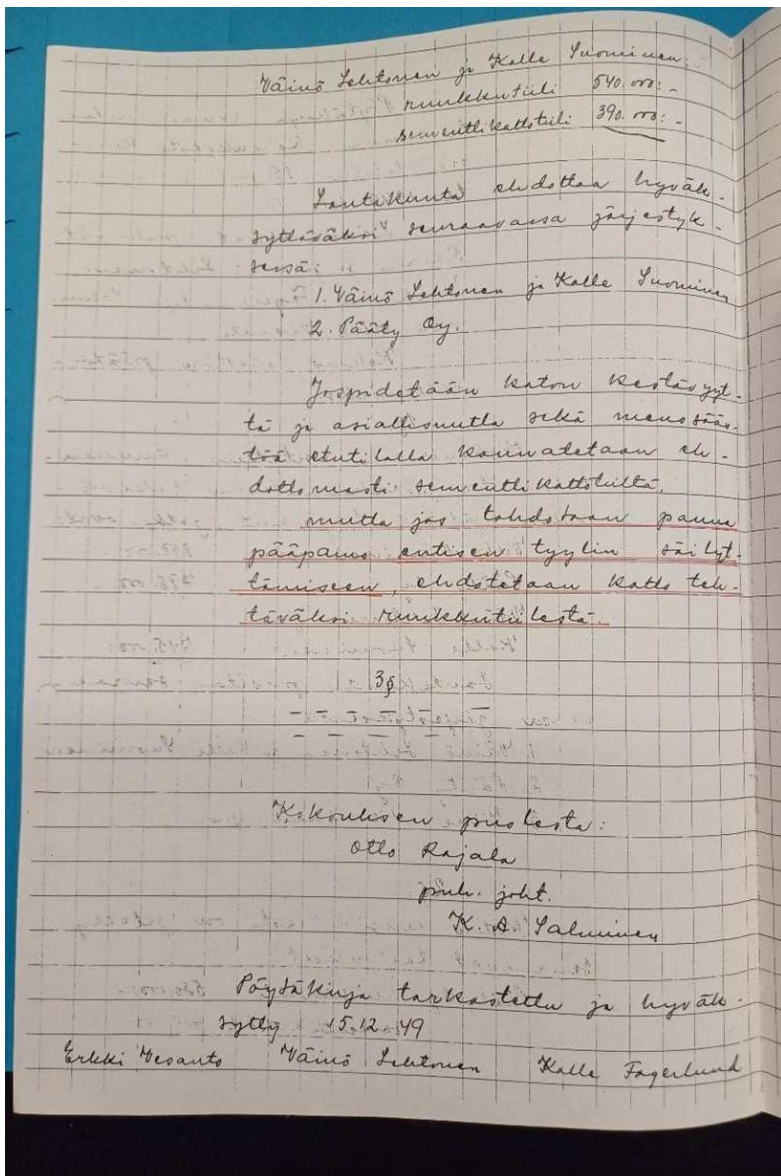 Väinö Lehtonen ja Kalle Suominen:
ruukkutiili 540.000:-
sementtikattotiili 390.000:-
Lautakunta ehdottaa hyväk-
syttäväksi seuraavassa järjestyk-
sessä:
1. Väinö Lehtonen ja Kalle Suominen
2. Pääty Oy.
Jos pidetään katon kestävyyt-
tä ja asiallisuutta sekä menosääs-
töä etutilalla kannatetaan eh-
dottomasti sementtikattotiiltä,
mutta jos tahdotaan panna
pääpaino entisen tyylin säilyt-
tämiseen, ehdotetaan katto teh-
täväksi ruukkutiilestä.
3§
Kokouksen puolesta:
Otto Rajala
puh. joht.
K. A. Salminen
Pöytäkirja tarkastettu ja hyväk-
sytty 15.12.-49
Erkki Vesanto Väinö Lehtonen Kalle Fagerlund